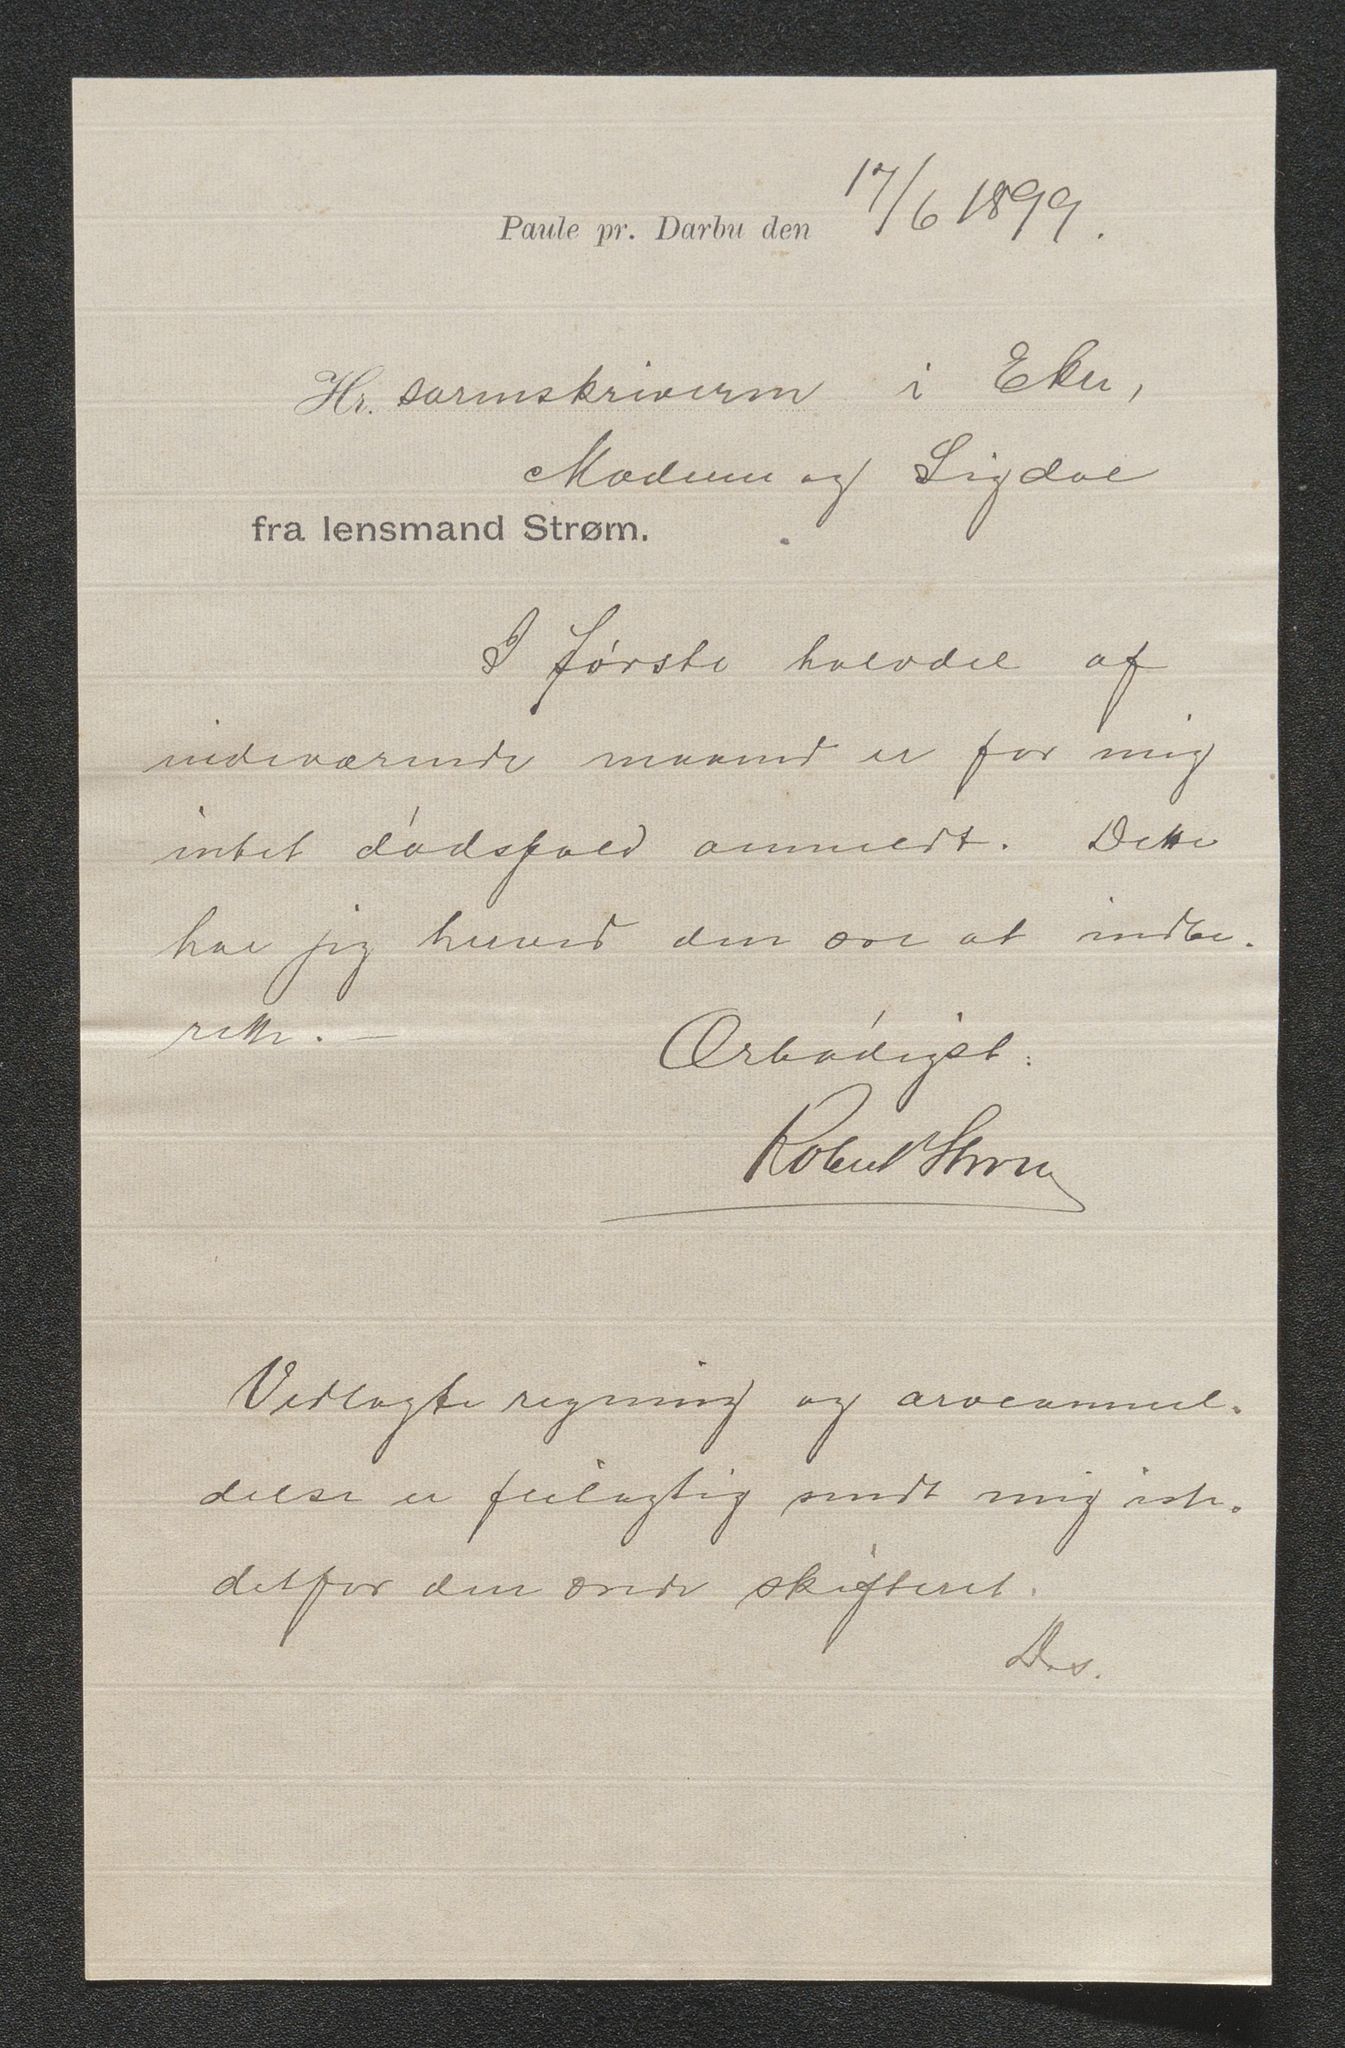 Paule pr. Darbu den 17/6 1899.
Hr. sorenskriveren i Eker,
Modum og Sigdal
fra lensmand Strøm.
I første halvdel af
indeværende maaned er for mig
intet dødsfald anmeldt. Dette
har jeg herved den ære at indbe-
rette. —
Ærbødigst:
Robert Strøm
Vedlagte regning og arveanmel-
delse er feilagtig sendt mig iste-
detfor den ærede skifteret.
D.s.